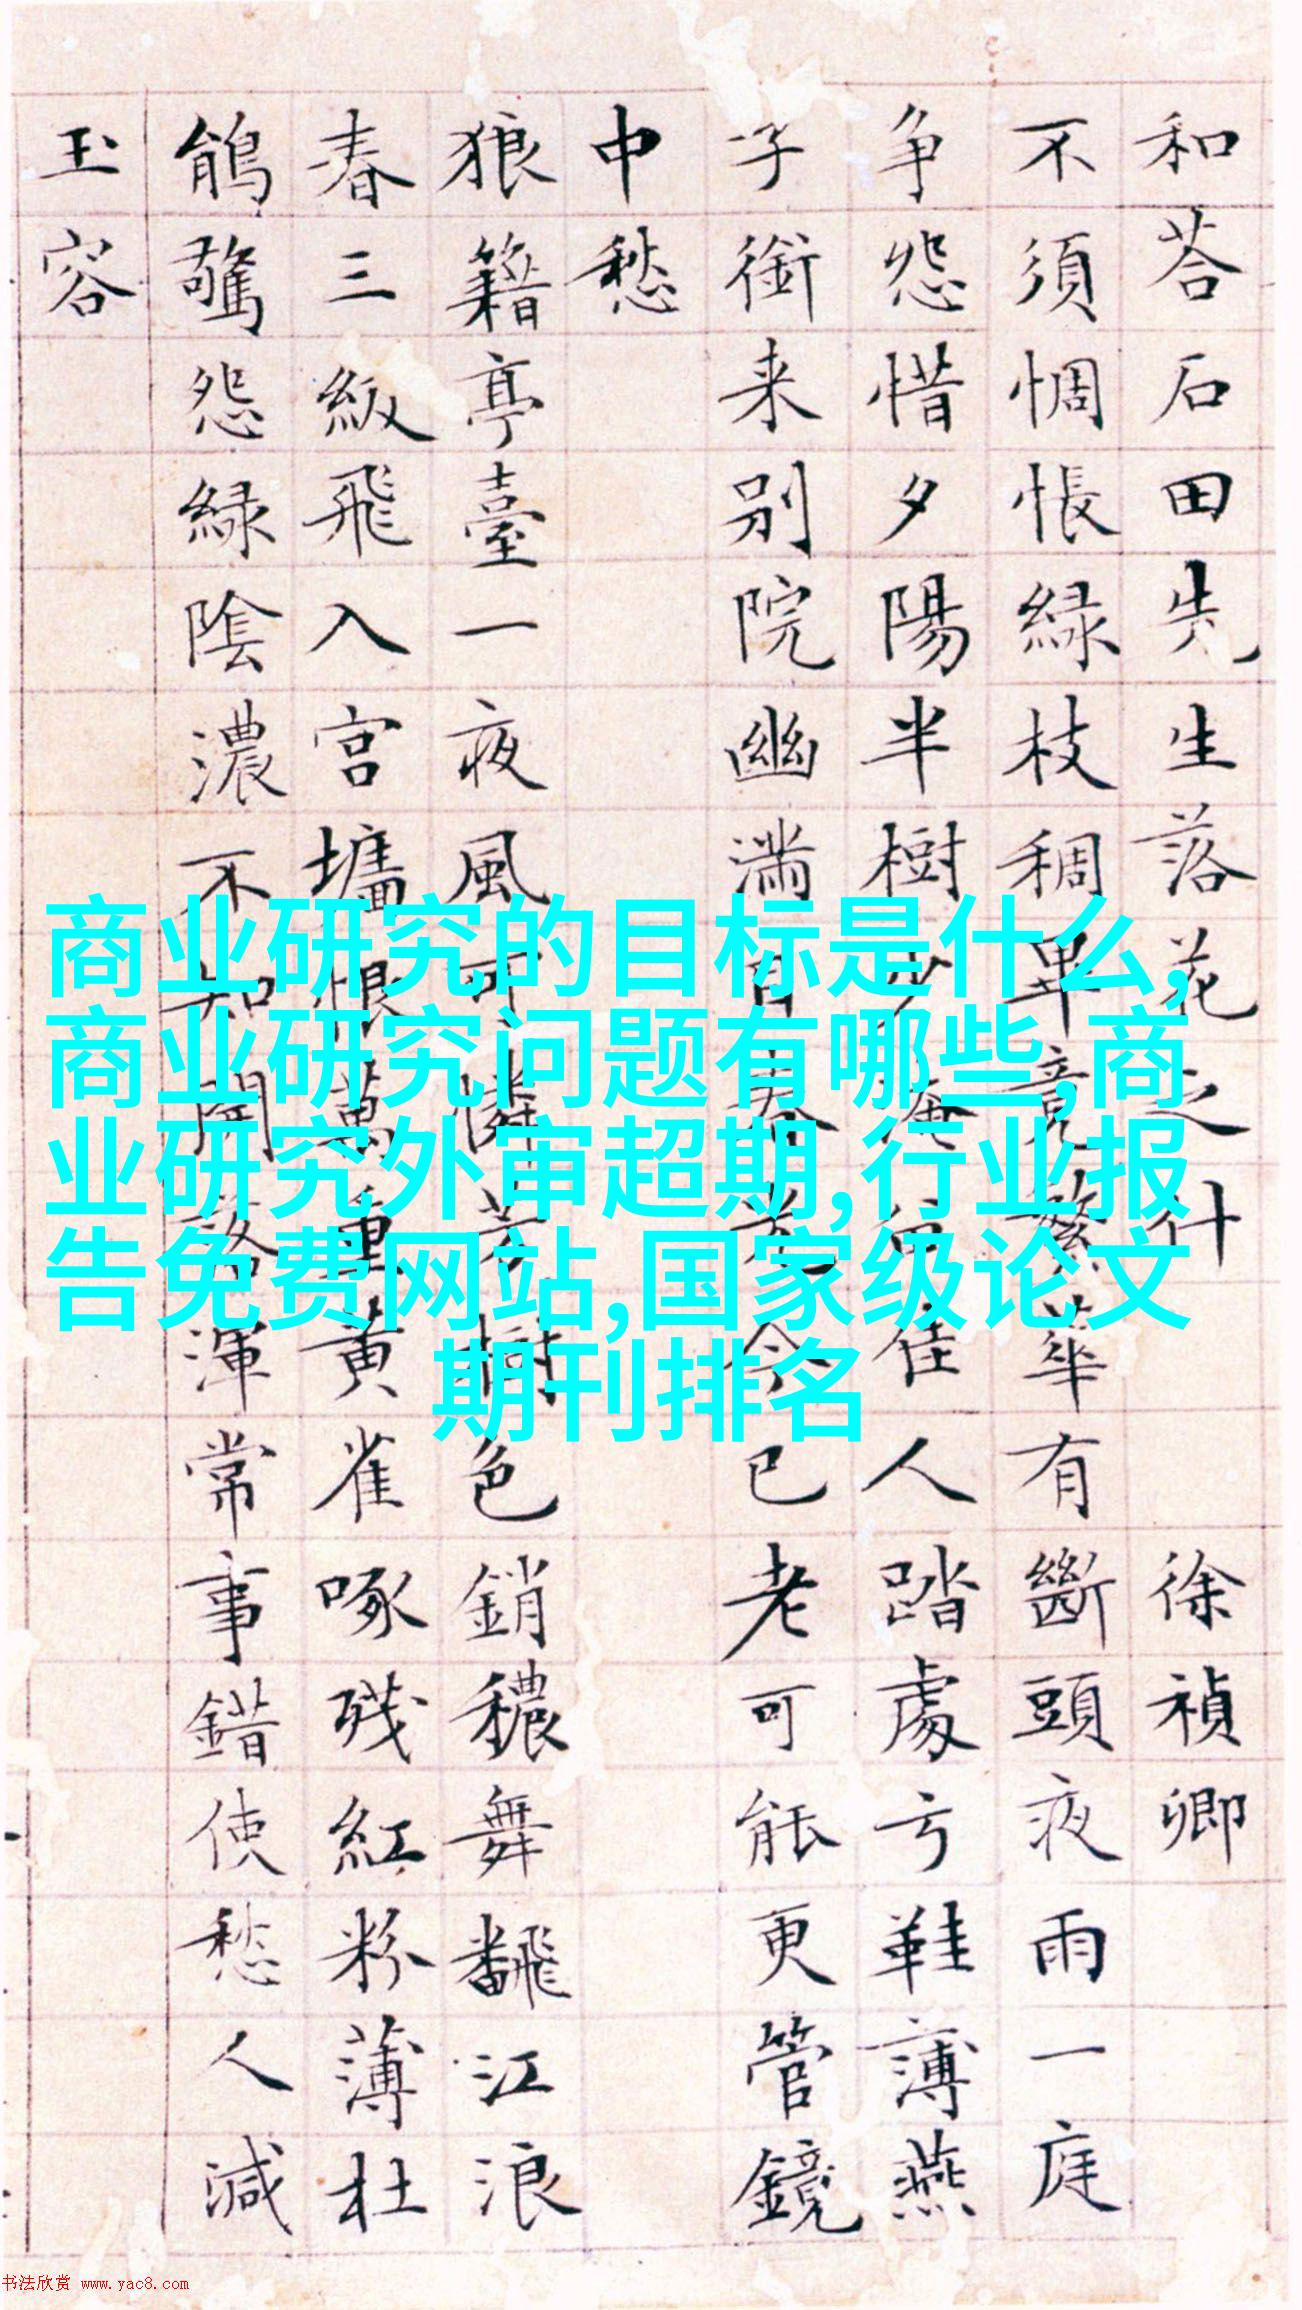 和荅石田先生落花之什 徐禎卿
不須惆悵緑枝稠畢竟繁華有斷頭夜雨一庭
争怨惜夕陽半樹少淹留佳人踏處弓鞋薄燕
子銜来别院幽满目春光今已老可能更管鏡
中愁
狼籍亭臺一夜風可憐芳樹色銷穠舞飜江浪
春三級飛入宫墻恨萬重黄雀啄残紅粉薄杜
鵑驚怨緑陰濃不知開落渾常事錯使愁人減
玉容
商业研究的目标是什么,
商业研究问题有哪些,商
业研究外审超期,行业报
告免费网站,国家级论文
期刊排名
书法欣赏 www.yac8.com